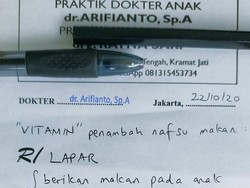 PRAKTIK DOKTER ANAK
dr.ARIFIANTO, Sp.A
Tengah, Kramat Jati
081315453734
DOKTER dr. Arifianto, Sp.A Jakarta, 22/10/20
"VITAMIN" penambah nafsu makan:
R/ LAPAR
∫ berikan makan pada anak